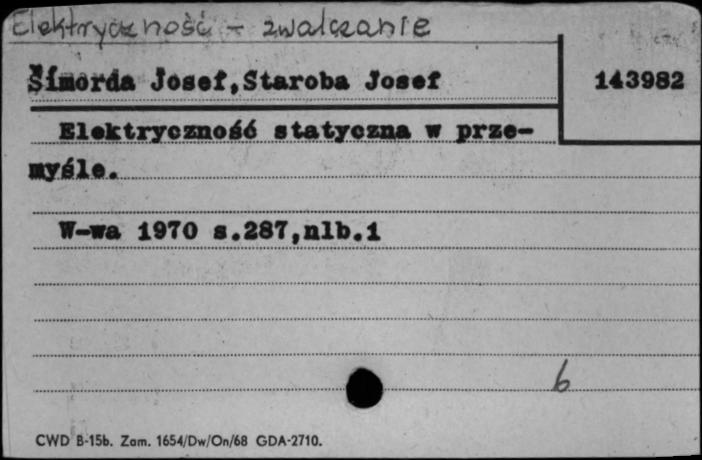 Elektryczność - zwalczanie
Šimorda Josef, Staroba Josef
143982
Elektryczność statyczna w prze-
myśle.
W-wa 1970 s.287,nlb.1
6
CWD B-15b. Zam. 1654/Dw/On/68 GDA-2710.